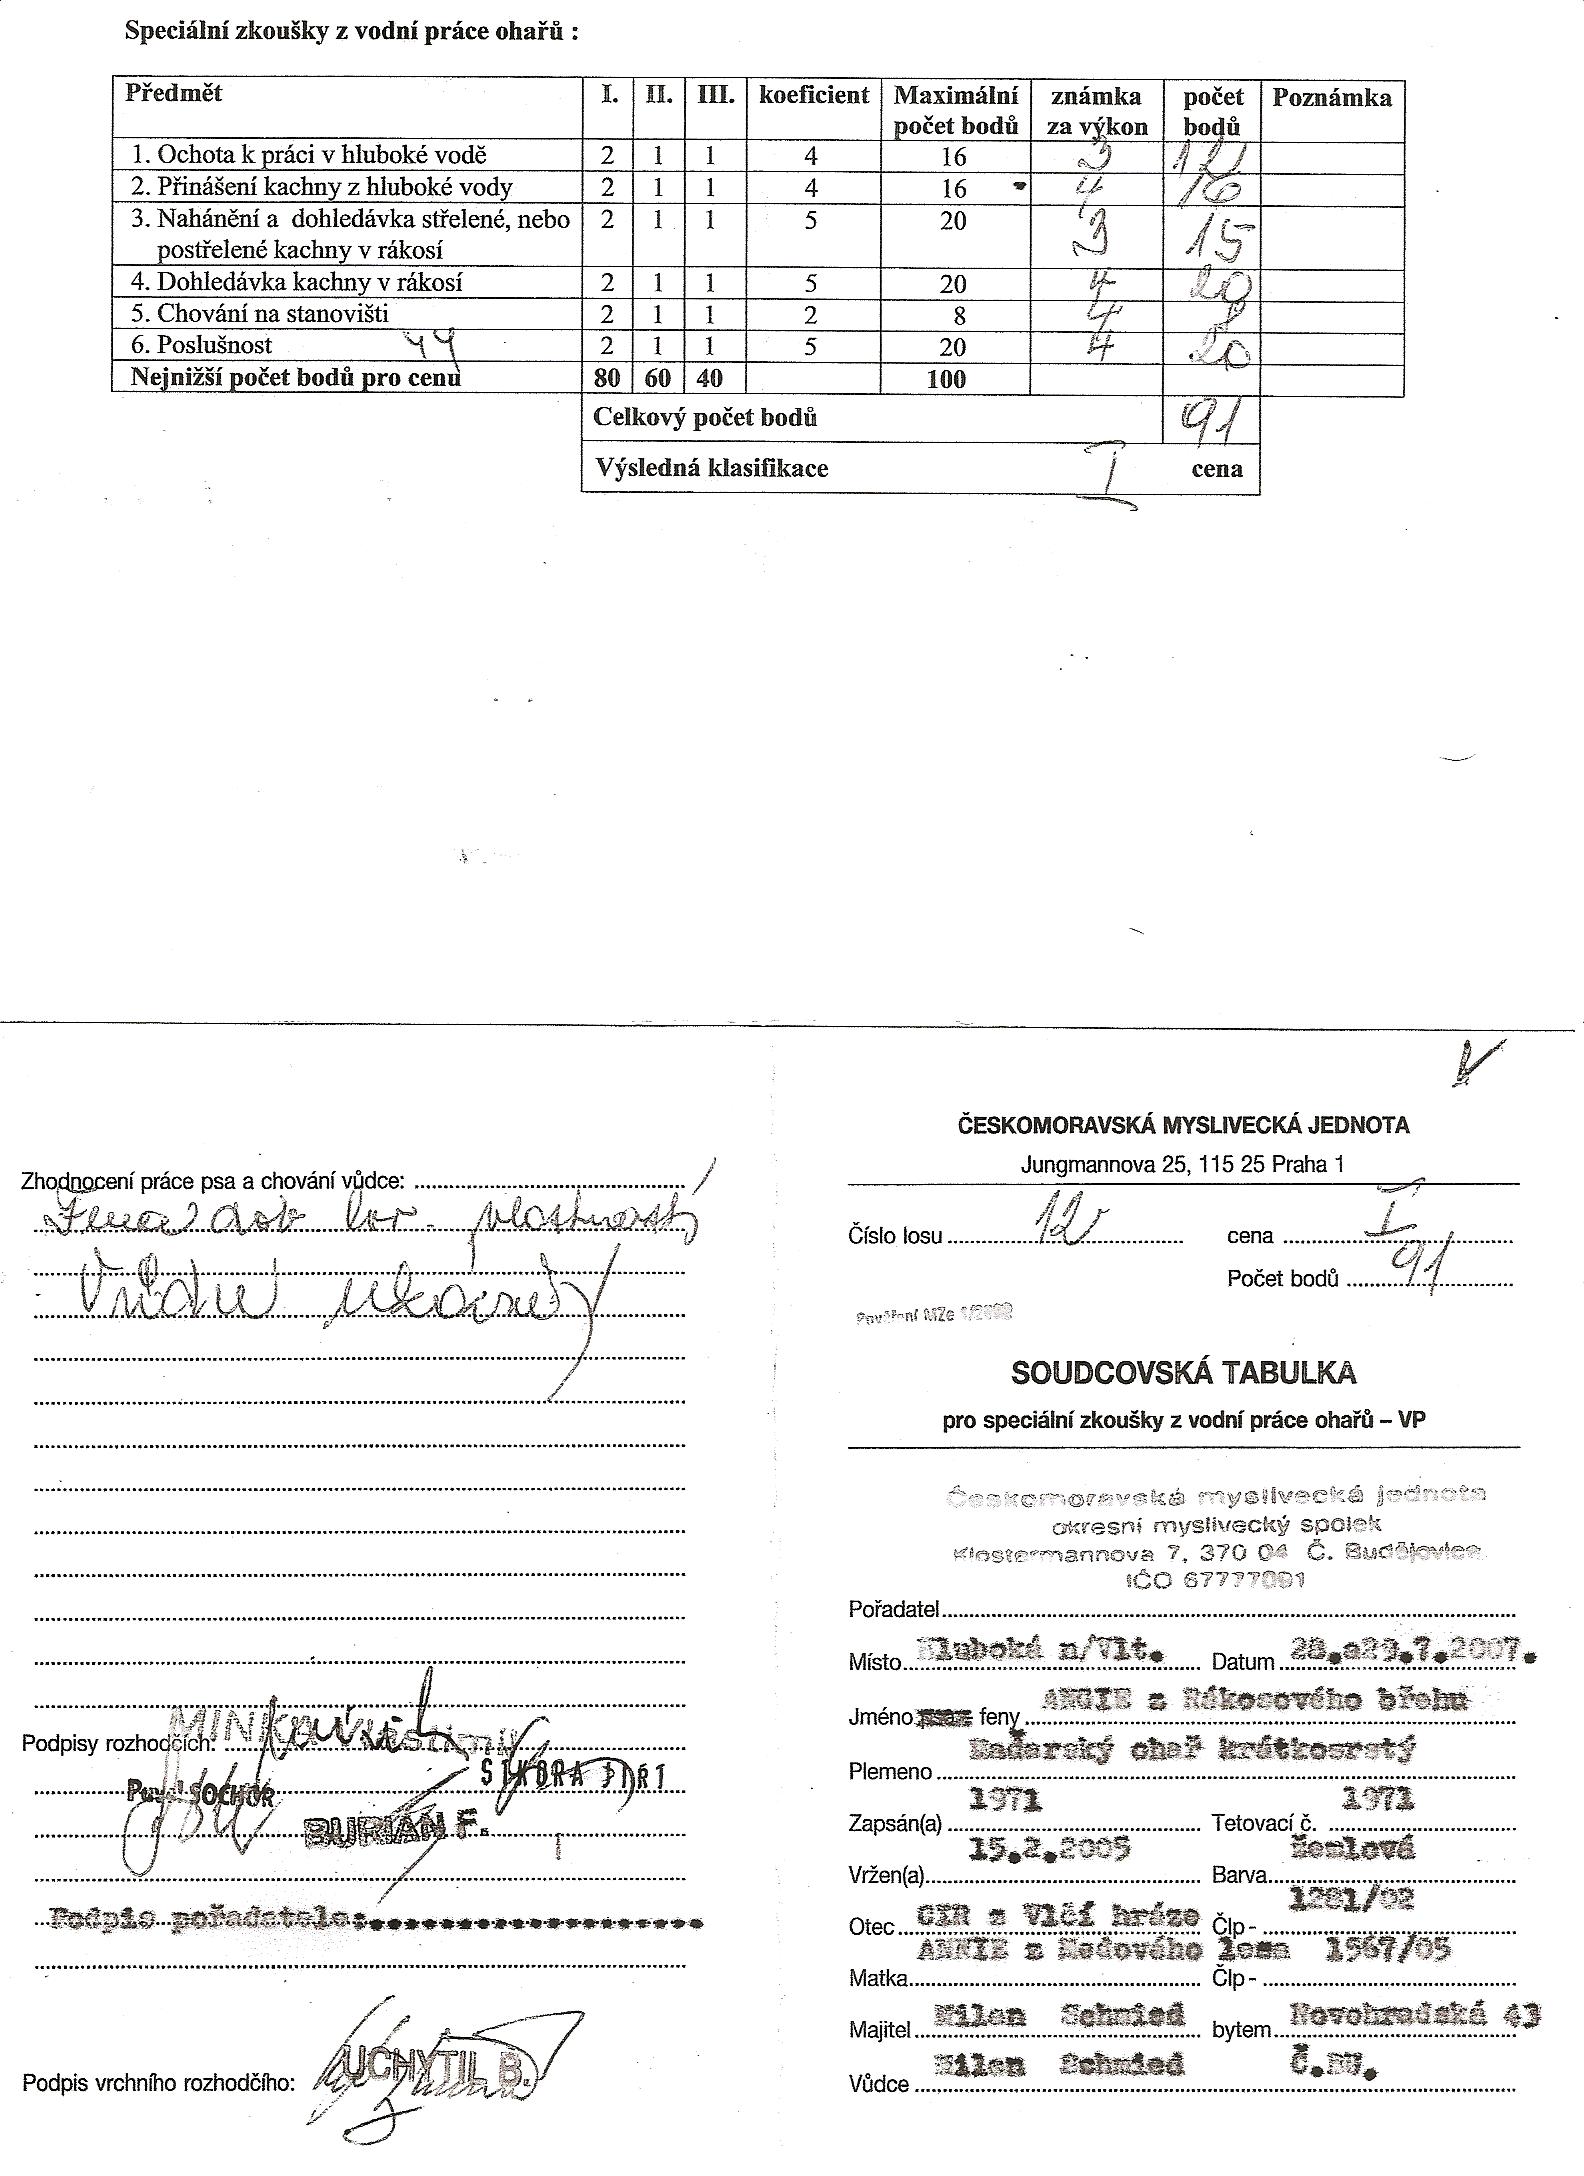 Speciální zkoušky z vodní práce ohařů :
Předmět I. II. III. koeficient Maximální počet bodů známka za výkon počet bodů Poznámka
1. Ochota k práci v hluboké vodě 2 1 1 4 16 3 12
2. Přinášení kachny z hluboké vody 2 1 1 4 16 4 16
3. Nahánění a dohledávka střelené, nebo
postřelené kachny v rákosí 2 1 1 5 20 3 15
4. Dohledávka kachny v rákosí 2 1 1 5 20 4 20
5. Chování na stanovišti 2 1 1 2 8 4 8
6. Poslušnost 2 1 1 5 20 4 20
Nejnižší počet bodů pro cenu 80 60 40 100
Celkový počet bodů 91
Výsledná klasifikace I cena
Zhodnocení práce psa a chování vůdce:
Fena dob lov. vlastností
Vůdce ukázněný
Podpisy rozhodčích:
Pavel SOCHOR
SÝKORA JIŘÍ
BURIAN F.
Podpis pořadatele:
Podpis vrchního rozhodčího: UCHYTIL B.
ČESKOMORAVSKÁ MYSLIVECKÁ JEDNOTA
Jungmannova 25, 115 25 Praha 1
Číslo losu 12 cena I
Počet bodů 91
Pověření MZe 1/2003
SOUDCOVSKÁ TABULKA
pro speciální zkoušky z vodní práce ohařů – VP
Českomoravská myslivecká jednota
okresní myslivecký spolek
Klostermannova 7, 370 04 Č. Budějovice
IČO 67777091
Pořadatel
Místo Hluboká n/Vlt. Datum 28.a29.7.2007.
Jméno psa feny ANGIE z Rákosového břehu
Plemeno Maďarský ohař krátkosrstý
Zapsán(a) 1971 Tetovací č. 1971
Vržen(a) 15.2.2005 Barva Žemlová
Otec CIR z Vlčí hráze Člp - 1281/02
Matka ANNIE z Medového lesa Člp - 1967/05
Majitel Milan Schmied bytem Novohradská 43
Vůdce Milan Schmied Č.BU.